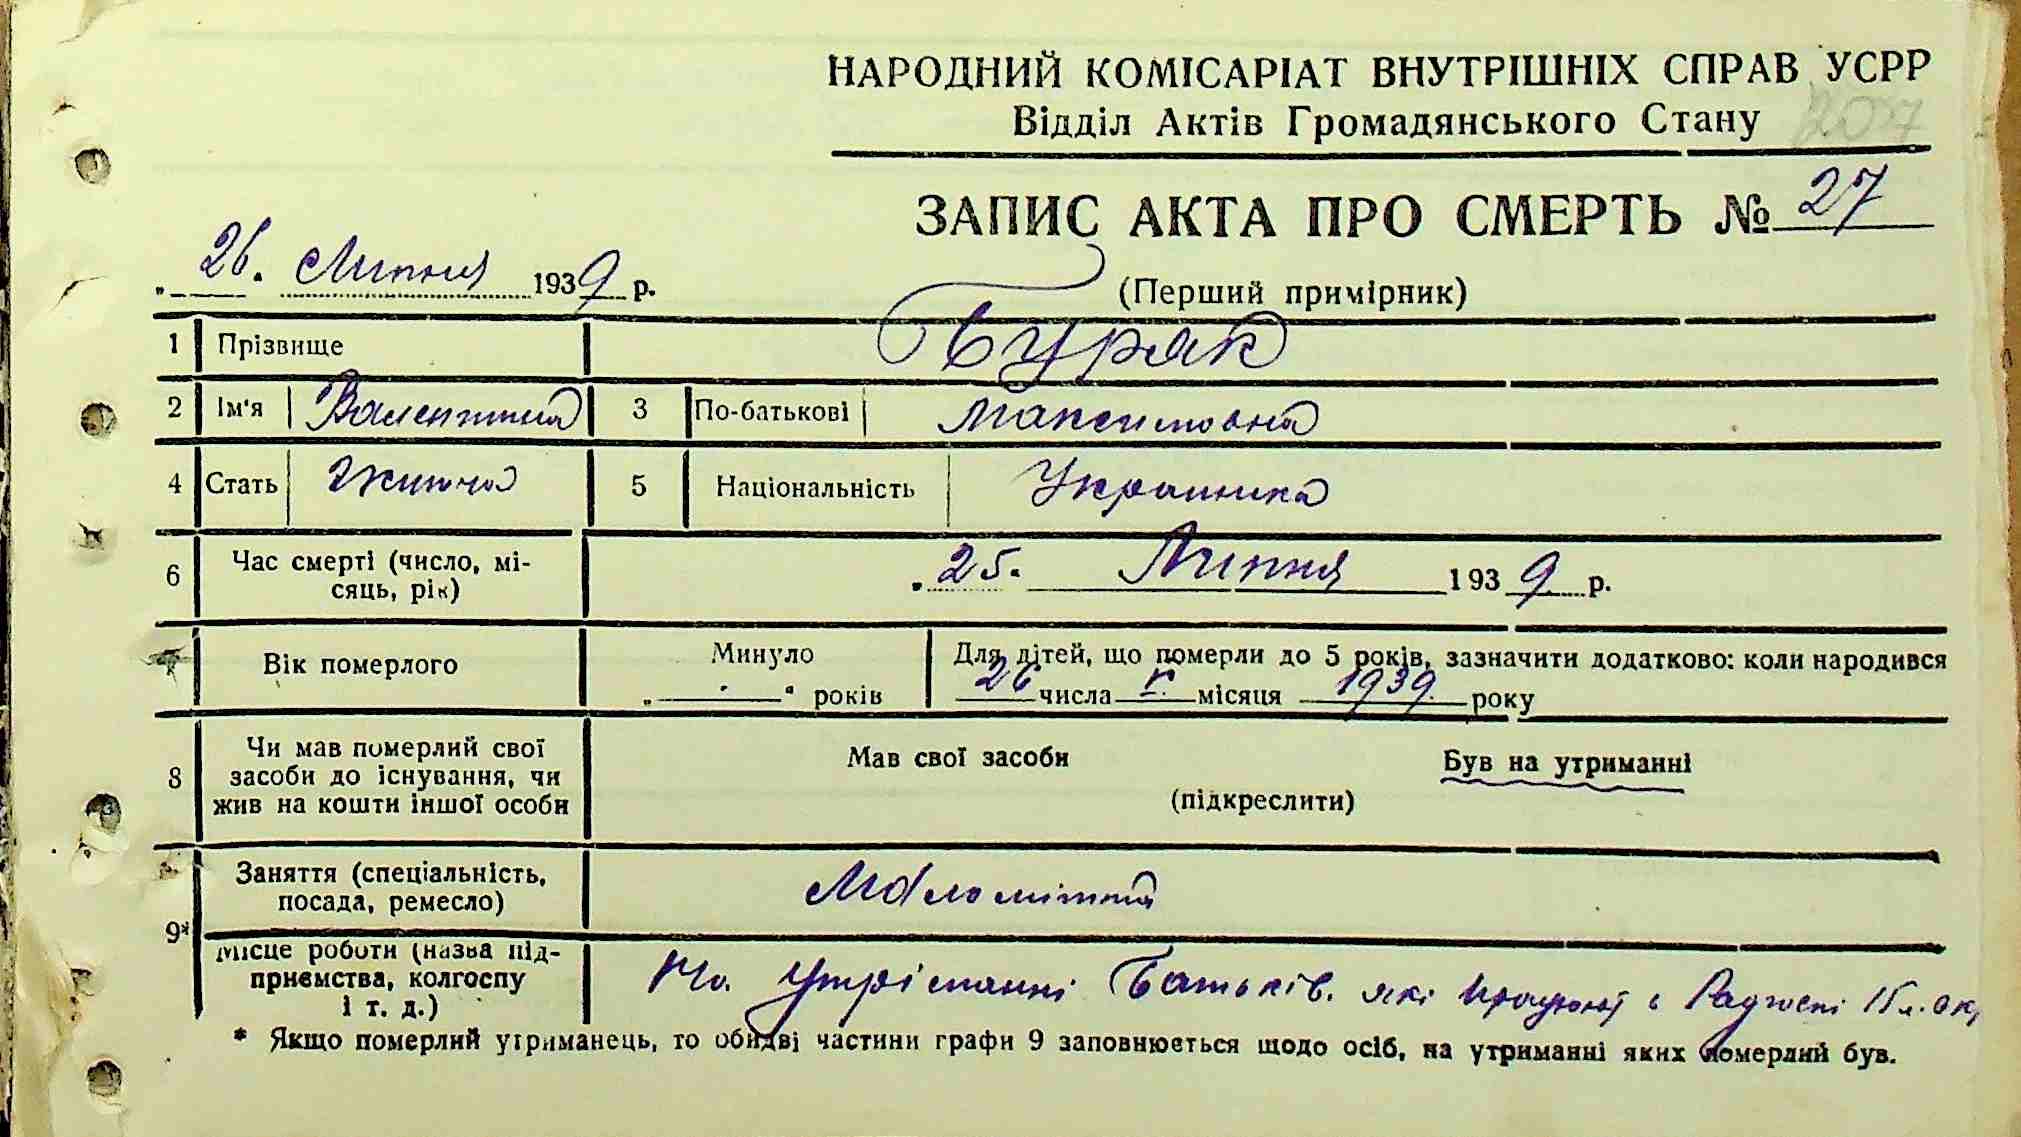 НАРОДНИЙ КОМІСАРІАТ ВНУТРІШНІХ СПРАВ УСРР
Відділ Актів Громадянського Стану 207
ЗАПИС АКТА ПРО СМЕРТЬ № 27
„ 26. Липня 1939 р.
(Перший примірник)
1 Прізвище Буряк
2 Ім'я Валентина 3 По-батькові Максимовна
4 Стать Жиноча 5 Національність Украинка
6 Час смерті (число, мі-
сяць, рік)
„ 25. Липня 1939 р.
7 Вік померлого
Минуло
„ — " років
Для дітей, що померли до 5 років, зазначити додатково: коли народився
26 числа V. місяця 1939. року
8 Чи мав померлий свої
засоби до існування, чи
жив на кошти іншої особи
Мав свої засоби Був на утриманні
(підкреслити)
9* Заняття (спеціальність,
посада, ремесло)
Малолітня
Місце роботи (назва під-
приємства, колгоспу
і т. д.)
На утріманні Батьків. які працюють в Радгоспі
* Якщо померлий утриманець, то обидві частини графи 9 заповнюється щодо осіб, на утриманні яких померлий був.